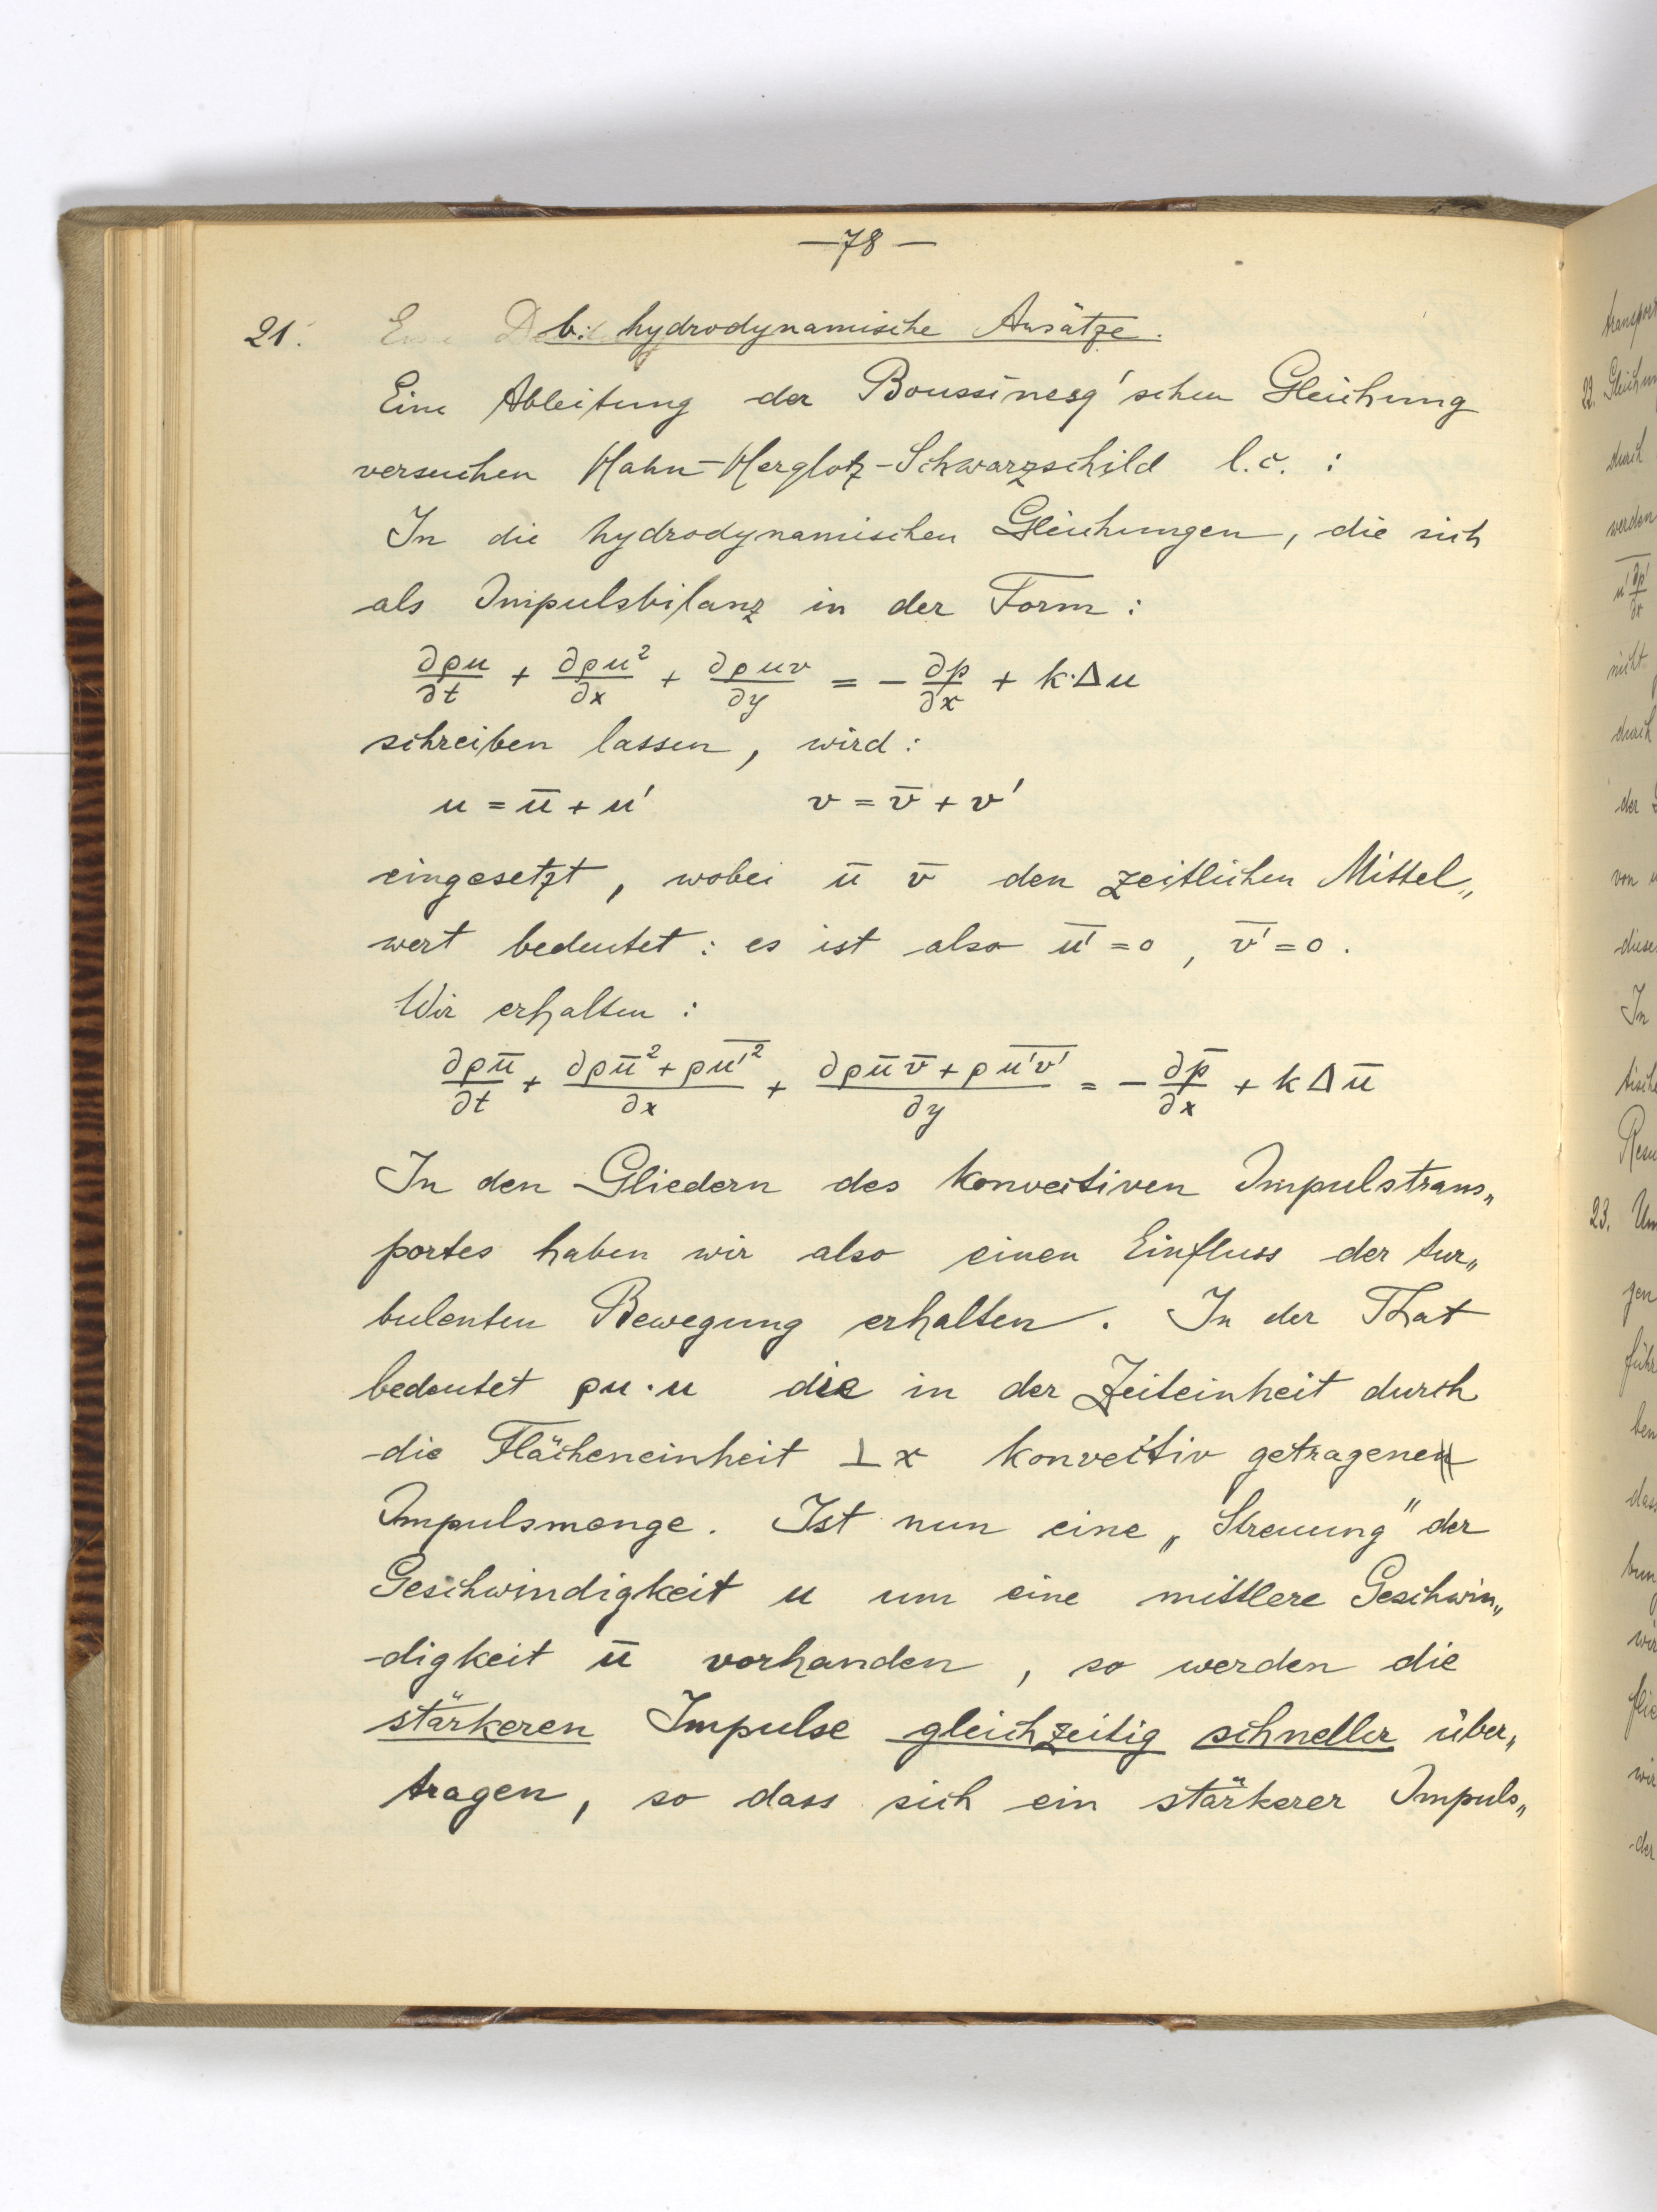 —78—
21. b: hydrodynamische Ansätze.
Eine Ableitung der Boussinesq'schen Gleichung
versuchen Hahn-Herglotz-Schwarzschild l.c. :
In die hydrodynamischen Gleichungen, die sich
als Impulsbilanz in der Form :
∂ρu/∂t + ∂ρu²/∂x + ∂ρuv/∂y = − ∂p/∂x + k·Δu
schreiben lassen, wird :
u = ū + u' v = v̄ + v'
eingesetzt, wobei ū v̄ den zeitlichen Mittel„
wert bedeutet : es ist also u̅'̅ = 0 , v̅'̅ = 0 .
Wir erhalten :
∂ρū/∂t + ∂ρū² + ρu̅'̅²̅/∂x + ∂ρūv̄ + ρu̅'̅v̅'̅/∂y = − ∂p̄/∂x + k Δ ū
In den Gliedern des konvectiven Impulstrans„
portes haben wir also einen Einfluss der tur„
bulenten Bewegung erhalten. In der That
bedeutet ρu·u die in der Zeiteinheit durch
die Flächeneinheit ⊥ x konvectiv getragene
Impulsmenge. Ist nun eine „Streuung" der
Geschwindigkeit u um eine mittlere Geschwin„
digkeit ū vorhanden, so werden die
stärkeren Impulse gleichzeitig schneller über„
tragen, so dass sich ein stärkerer Impuls„
transport
22. Gleichun
durch
werden
u' ∂p'/∂x
nicht
durch
der
von u
diese
In
23. Um
gen
führ
ben
dass
wir
wir
der